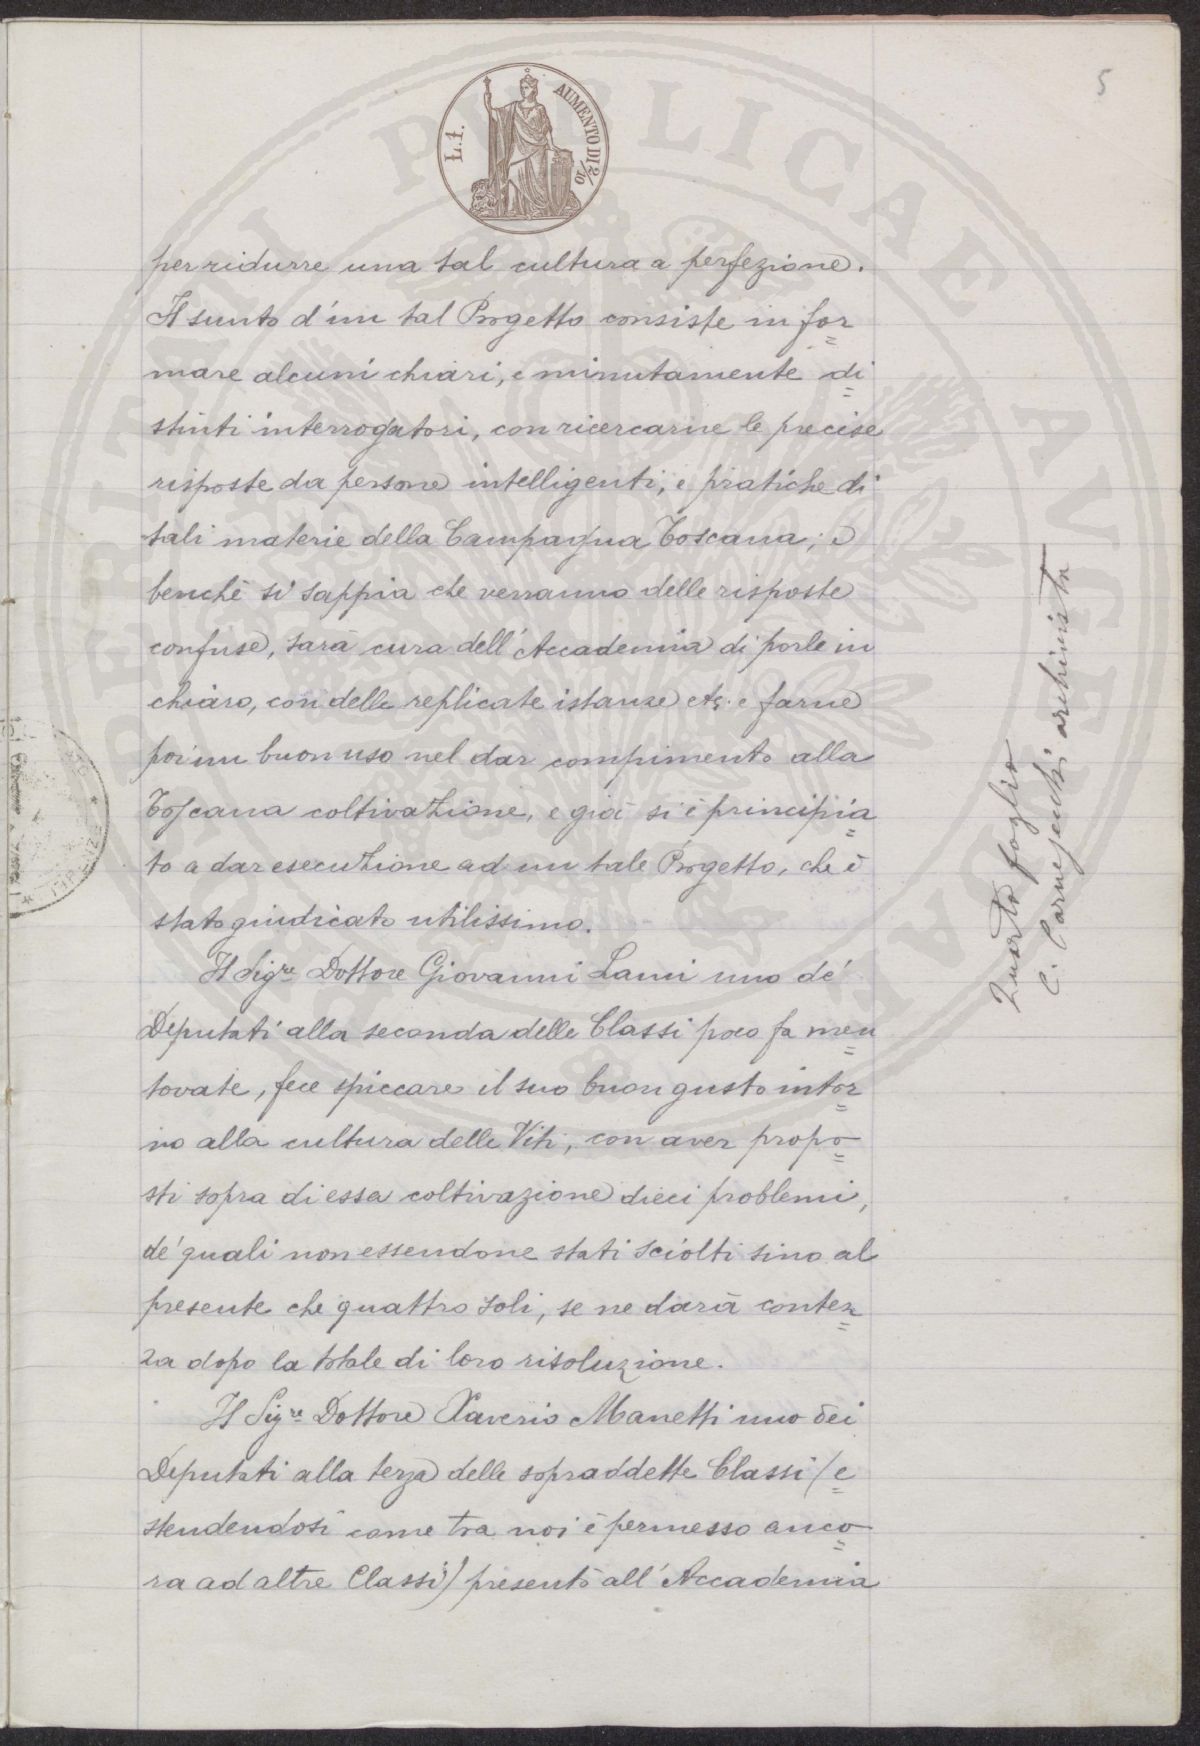 5
L. 1. AUMENTO DI 2/10
per ridurre una tal cultura a perfezione.
Il sunto d'un tal Progetto consiste in for=
mare alcuni chiari, e minutamente di=
stinti interrogatori, con ricercarne le precise
risposte da persone intelligenti, e pratiche di
tali materie della Campagna Toscana; e
benchè si sappia che verranno delle risposte
confuse, sarà cura dell'Accademia di porle in
chiaro, con delle replicate istanze etc. e farne
poi un buon uso nel dar compimento alla
Toscana coltivazione, e già si è principia=
to a dar esecuzione ad un tale Progetto, che è
stato giudicato utilissimo.
Il Sigre Dottore Giovanni Lami uno de'
Deputati alla seconda delle Classi poco fa men=
tovate, fece spiccare il suo buon gusto intor=
no alla cultura delle Viti, con aver propo=
sti sopra di essa coltivazione dieci problemi,
de' quali non essendone stati sciolti sino al
presente che quattro soli, se ne darà contez=
za dopo la totale di loro risoluzione.
Il Sigre Dottore Xaverio Manetti uno dei
Deputati alla terza delle sopraddette Classi (e=
stendendosi come tra noi è permesso anco=
ra ad altre Classi) presentò all'Accademia
Quarto foglio
C. Carnesecchi archivista